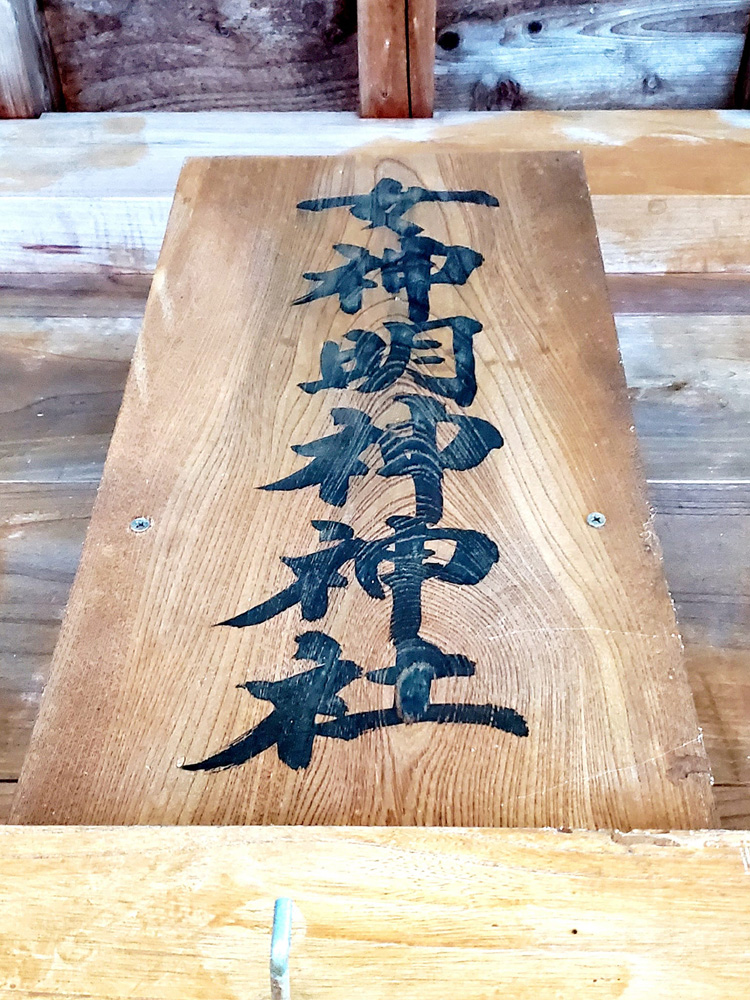 女神明神神社